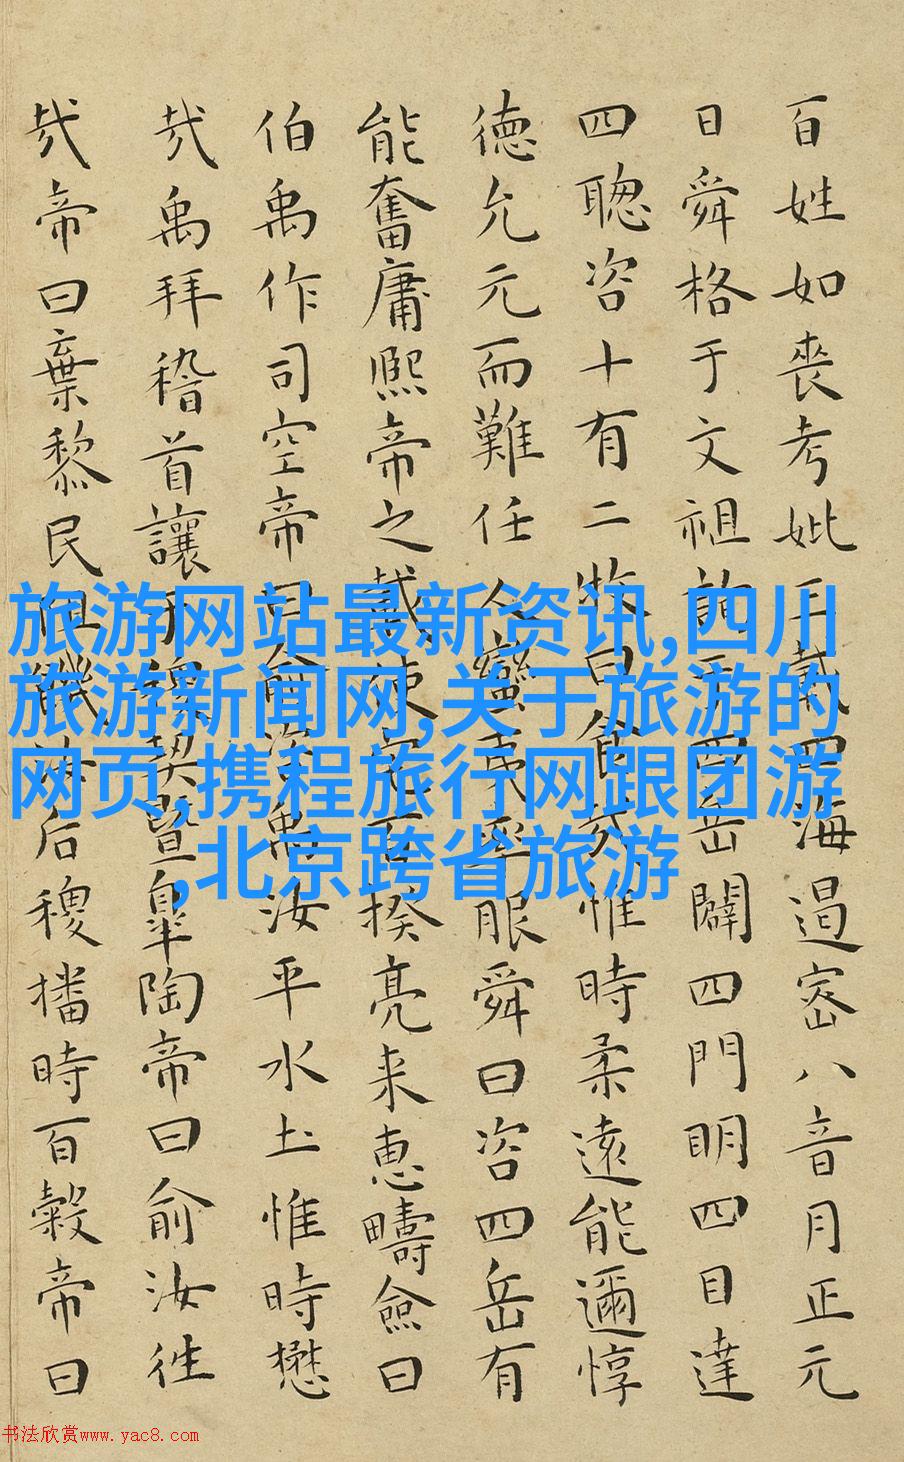 百姓如喪考妣三載四海遏密八音月正元
日舜格于文祖詢于四岳闢四門明四目達
四聰咨十有二牧曰食哉惟時柔遠能邇惇
德允元而難任人蠻夷率服舜曰咨四岳有
能奮庸熙帝之載使宅百揆亮采惠疇僉曰
伯禹作司空帝曰俞咨禹汝平水土惟時懋
哉禹拜稽首讓于稷契暨皋陶帝曰俞汝往
哉帝曰棄黎民阻饑汝后稷播時百穀帝曰
旅游网站最新资讯,四川
旅游新闻网,关于旅游的
网页,携程旅行网跟团游
,北京跨省旅游
书法欣赏www.yac8.com